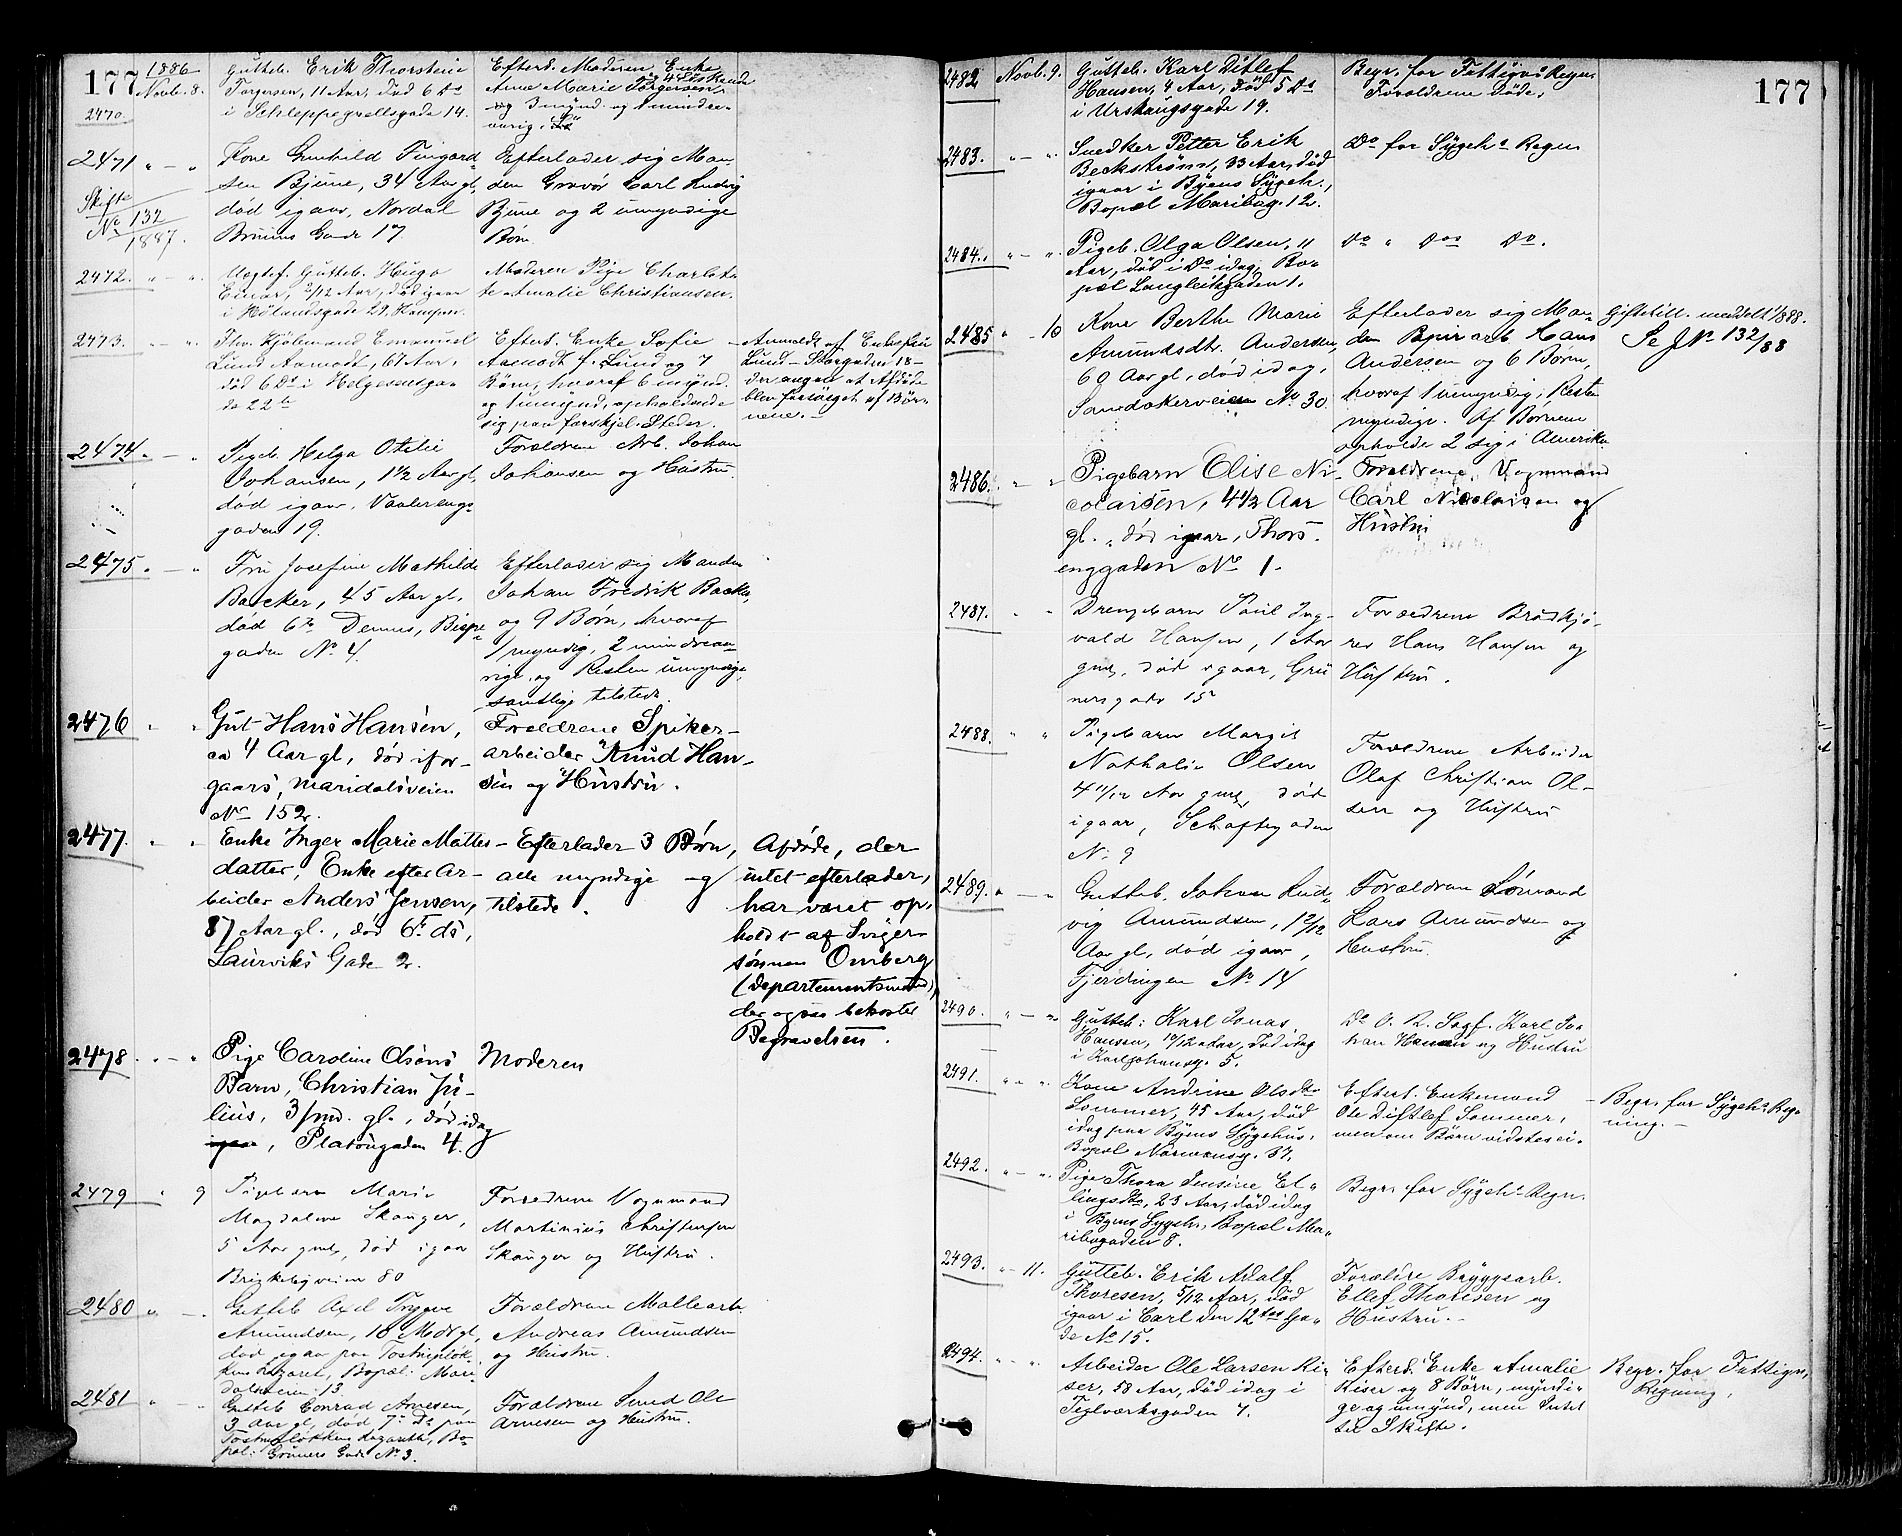 177
1886
Novb. 8.
2470.
Gutteb. Erik Thorstein
Torgersen, 11 Aar, død 6 Ds
i Schleppegrellsgade 14.
Efterl. Moderen Enke
Arne Marie Torgersen,
og 4 Søskende
og 3 mynd. og 1 mindre-
aarig
2471 " — "
Skifte
No 132
1887.
Kone Gunhild Fingard-
sen Bjune, 34 Aar gl,
død igaar, Nordal
Bruuns Gade 17.
Efterlader sig Man-
den Gravør Carl Ludvig
Bjune og 2 umyndige
Børn.
2472. " — "
Uegtef. Gutteb. Hugo
Einar, 2/12 Aar, død igaar
i Hølandsgade 29, Kampen.
Moderen Pige Charlot-
te Amalie Christiansen.
2473. " — "
Fhv. Kjøbmand Emanuel
Lund Aamodt, 67 Aar,
død 6 Ds i Helgesensga-
de 22 b
Efterl. Enke Sofie
Aamodt f. Lund og 7
Børn, hvoraf 6 mynd.
og 1 umynd, opholdende
sig paa forskjel. Steder.
Anmeldt af Enkefru
Lund – Storgaden 18 –
der angav at Afdøde
blev forsørget af Bør-
nene. —
2474. — "
Pigeb. Helga Otelie
Johansen, 1½ Aar gl,
død igaar, Vaalereng-
gaden 19.
Forældrene Arb. Johan
Johansen og Hustru.
2475. — "
Fru Josefine Mathilde
Backer, 45 Aar gl.
død 6te Dennes, Bispe-
gaden No 4.
Efterlader sig Manden
Johan Fredrik Backer,
og 9 Børn, hvoraf
1 myndig, 2 mindreaa-
rige, og Resten umyndige,
samtlige tilstede.
2476 " "
Gut Hans Hansen,
ca 4 Aar gl, død ifor-
gaars, Maridalsveien
No 152.
Forældrene Spiker-
arbeider Knud Han-
sen og Hustru.
2477. " "
Enke Inger Marie Mattes-
datter, Enke efter Ar-
beider Anders Jensen,
87 Aar gl., død 6te ds,
Laurviks Gade 2.
Efterlader 3 Børn,
alle myndige og
tilstede.
Afdøde, der
intet efterlader,
har været op-
holdt af Sviger-
sønnen Omberg
(Departementsmand),
der også bekoster
Begravelsen.
2478 . — "
Pige Caroline Olsens
Barn, Christian Ju-
lius, 3/md. gl., død idag
igaar, Platougaden 4.
Moderen
2479 " 9
Pigebarn Marie
Magdalene Skauger,
5 Aar gml, død igaar
Brækkebyveien 80
Forældrene Vognmand
Martinius Christensen
Skauger og Hustru.
2480 " — .
Gutteb Axel Trygve
Amundsen, 18 Mdr gl,
død igaar paa Tostrupløk-
kens Lazaret, Bopæl: Mari-
dalsveien 13.
Forældrene Mallearb
Andreas Amundsen
og Hustru.
2481 " — "
Gutteb Conrad Arnesen,
3 Aar gl, død 7de Ds paa
Tostrupløkkens Lazareth, Bo-
pæl: Grüners Gade No 3.
Forældrene Smed Ole
Arnesen og Hustru.
2482 Novb. 9.
Gutteb. Karl Ditlef
Hansen, 4 Aar, død 5 Ds
i Urskaugsgade 19.
Begr. for Fattigvs Regn.
Forældrene døde.
177
2483. " — "
Snedker Petter Erik
Beckstrøm, 33 Aar, død
igaar i Byens Sygeh.,
Bopæl Maribog. 12.
Do for Sygehs Regn
2484. " — "
Pigeb. Olga Olsen, 11
Aar, død i Do idag, Bo-
pæl Langleiksgaden 1.
Do " Dos Do.
2485 " — 10
Kone Berthe Marie
Amundsdtr. Andersen,
60 Aar gl, død idag,
Sandakerveien No 30.
Efterlader sig Man-
den Bpirarb Hans
Andersen og 6 Børn,
hvoraf 1 umyndig, Resten
myndige. Af Børnene
opholde 2 sig i Amerika
Giftetill. meddelt 1/3 88.
Se J No 132/88
2486. " "
Pigebarn Elise Ni-
colaisen, 4½ Aar
gl., død igaar, Thors-
enggaden No 1.
Forældrene, Vognmand
Carl Nicolaisen og
Hustru
2487. " "
Drengebarn Paul Ing-
vald Hansen, 1 Aar
gml, død igaar, Grü
nersgade 15
Forældrene Brødkjø-
rer Hans Hansen og
Hustru.
2488. " "
Pigebarn Margit
Nathalie Olsen
4 11/12 Aar gml, død
igaar, Schoftesgaden
No 9
Forældrene Arbeider
Olaf Christian Ol-
sen og Hustru
2489. " — "
Gutteb. Johan Lud-
vig Amundsen, 1 2/12
Aar gl, død igaar,
Fjerdingen No 14
Forældrene Lømand
Lars Amundsen og
Hustru.
2490. " — "
Gutteb: Karl Jonas
Hansen, 10/12 Aar, død idag
i Karljohansg. 5.
Do O. R. Sagf. Karl Jo-
han Hansen og Hustru
2491. " — "
Kone Andrine Olsdtr
Sommer, 45 Aar, død
idag paa Byens Sygehus,
Bopæl Normansg. 37.
Efterl. Enkemand
Ole Ditlef Sommer,
men om Børn vidstes ei.
Begr. for Sygehs Reg-
ning. —
2492. " — "
Pige Thora Jensine El-
lingsdtr, 23 Aar, død idag
i Byens Sygeh., Bopæl Ma-
ribogaden 8.
Begr. for Sygehs Regn.
2493. " — 11.
Gutteb. Erik Adolf
Thoresen, 5/12 Aar, død
igaar i Carl den 12tes Ga-
de No 15.
Forældre Bryggearb.
Ellef Thoresen og
Hustru. —
2494. " — "
Arbeider Ole Larsen Ki-
ser, 58 Aar, død idag i
Teglverksgaden 7.
Efterl. Enke Amalie
Kiser og 8 Børn, myndi-
ge og umynd, men Intet
til Skifte.
Begr. for Fattigv,
Regning.